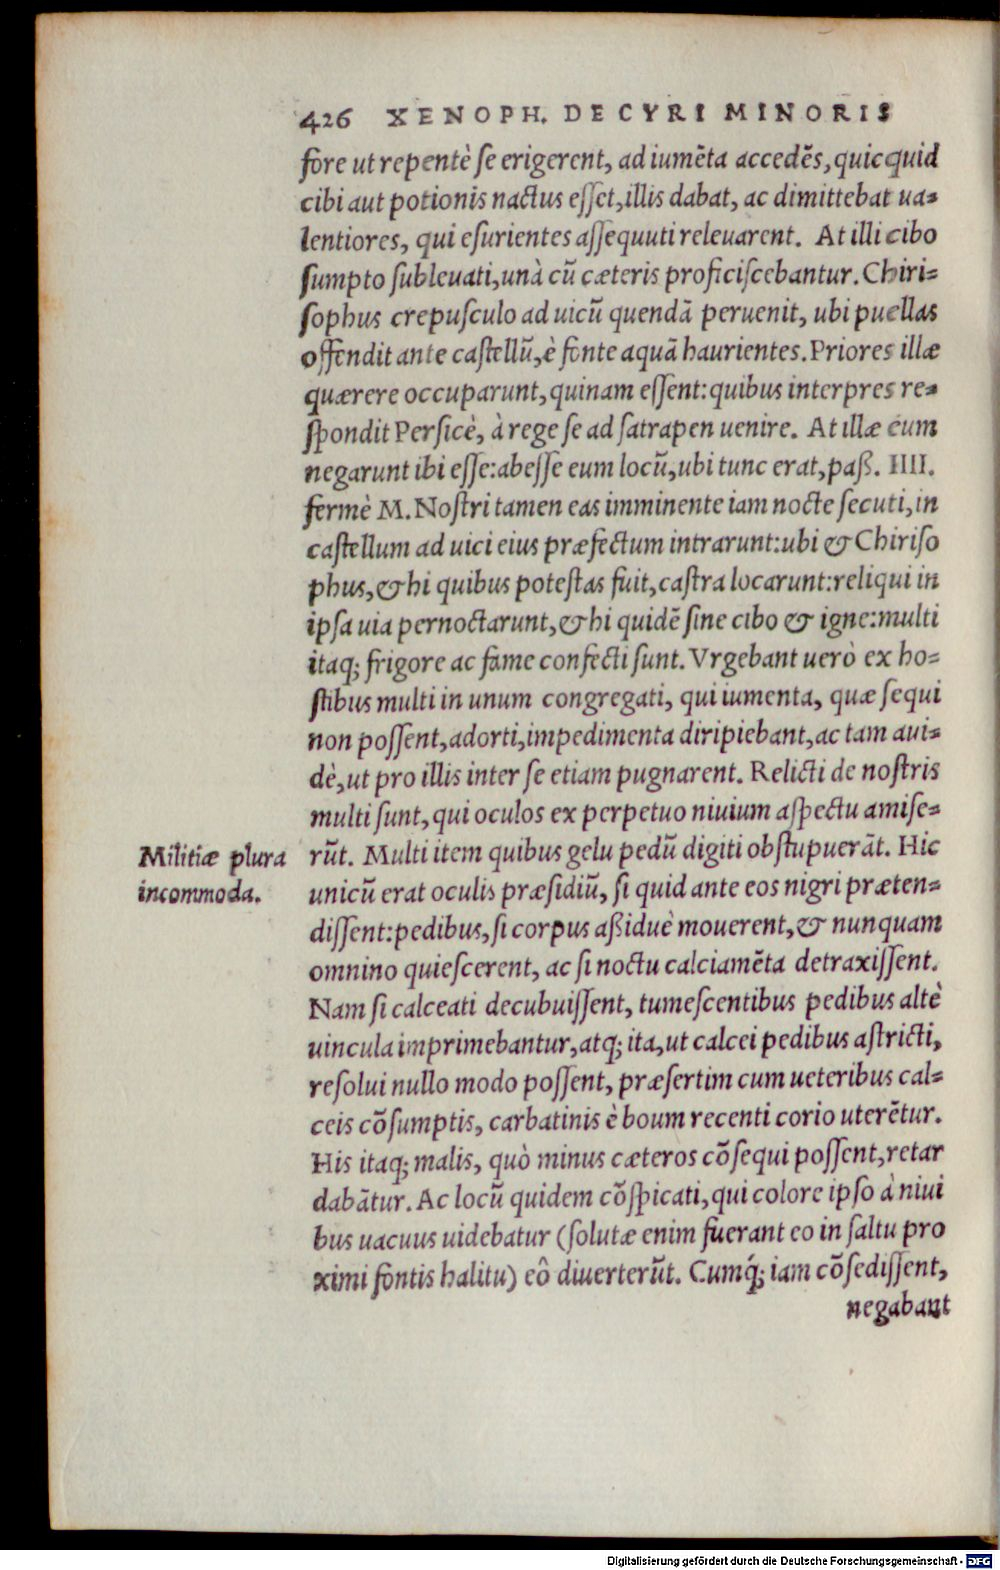 426 XENOPH. DE CYRI MINORIS
fore ut repentè se erigerent, ad iumẽta accedẽs, quicquid
cibi aut potionis nactus esset, illis dabat, ac dimittebat ua-
lentiores, qui esurientes assequuti releuarent. At illi cibo
sumpto subleuati, unà cũ cæteris proficiscebantur. Chiri-
sophus crepusculo ad uicũ quendã peruenit, ubi puellas
offendit ante castellũ, è fonte aquã haurientes. Priores illæ
quærere occuparunt, quinam essent: quibus interpres re-
spondit Persicè, à rege se ad satrapen uenire. At illæ eum
negarunt ibi esse: abesse eum locũ, ubi tunc erat, paß. IIII.
fermè M. Nostri tamen eas imminente iam nocte secuti, in
castellum ad uici eius præfectum intrarunt: ubi & Chiriso
phus, & hi quibus potestas fuit, castra locarunt: reliqui in
ipsa uia pernoctarunt, & hi quidẽ sine cibo & igne: multi
itaq; frigore ac fame confecti sunt. Vrgebant uerò ex ho-
stibus multi in unum congregati, qui iumenta, quæ sequi
non possent, adorti, impedimenta diripiebant, ac tam aui-
dè, ut pro illis inter se etiam pugnarent. Relicti de nostris
multi sunt, qui oculos ex perpetuo niuium aspectu amise-
Militiæ plura
incommoda.
rũt. Multi item quibus gelu pedũ digiti obstupuerãt. Hic
unicũ erat oculis præsidiũ, si quid ante eos nigri præten-
dissent: pedibus, si corpus aßiduè mouerent, & nunquam
omnino quiescerent, ac si noctu calciamẽta detraxissent.
Nam si calceati decubuissent, tumescentibus pedibus altè
uincula imprimebantur, atq; ita, ut calcei pedibus astricti,
resolui nullo modo possent, præsertim cum ueteribus cal-
ceis cõsumptis, carbatinis è boum recenti corio uterẽtur.
His itaq; malis, quò minus cæteros cõsequi possent, retar
dabãtur. Ac locũ quidem cõspicati, qui colore ipso à niui
bus uacuus uidebatur (solutæ enim fuerant eo in saltu pro
ximi fontis halitu) eô diuerterũt. Cumq́; iam cõsedissent,
negabant
Digitalisierung gefördert durch die Deutsche Forschungsgemeinschaft - DFG